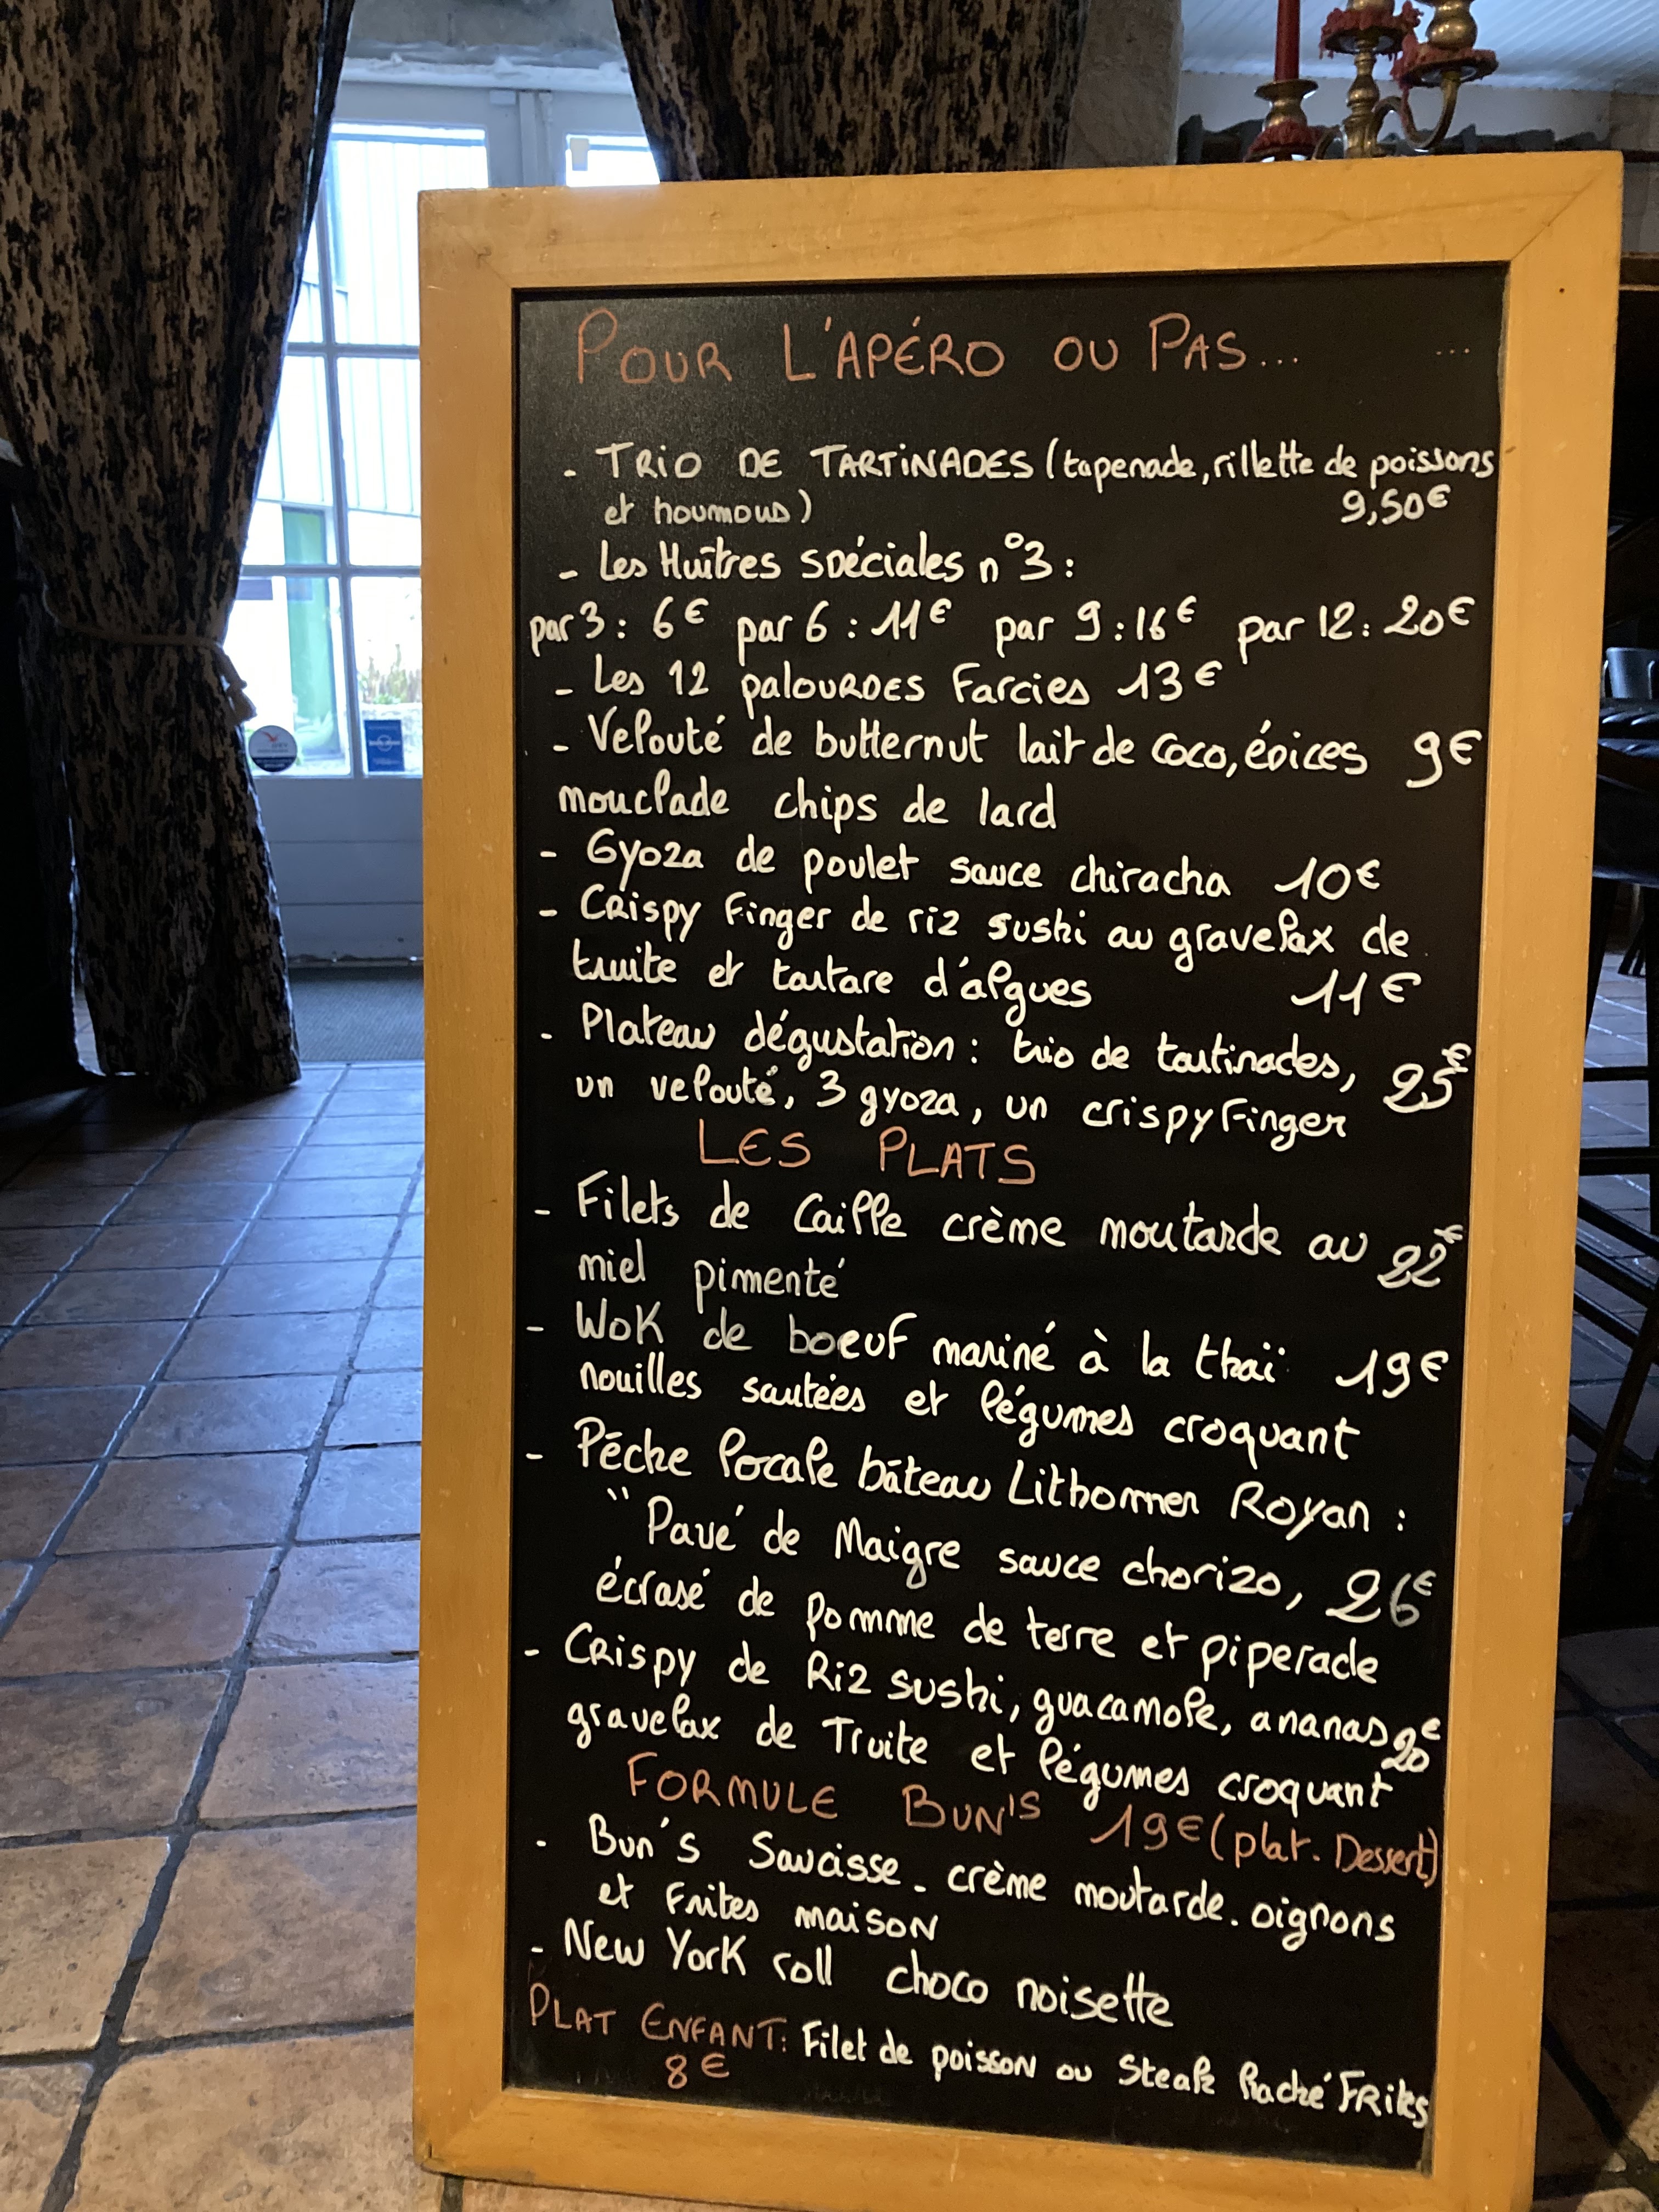 POUR L'APÉRO OU PAS... ...
- TRIO DE TARTINADES (tapenade, rillette de poissons
et houmous) 9,50€
- Les Huîtres spéciales n°3 :
par 3 : 6€ par 6 : 11€ par 9 : 16€ par 12 : 20€
- Les 12 palourdes Farcies 13€
- Velouté de butternut lait de coco, épices 9€
mouclade chips de lard
- Gyoza de poulet sauce chiracha 10€
- Crispy Finger de riz sushi au gravelax de
truite et tartare d'algues 11€
- Plateau dégustation : trio de tartinades, 25€
un velouté, 3 gyoza, un crispy Finger
LES PLATS
- Filets de Caille crème moutarde au 22€
miel pimenté
- Wok de boeuf mariné à la thaï 19€
nouilles sautées et légumes croquant
- Pêche locale bâteau Lithomer Royan :
"Pavé de Maigre sauce chorizo, 26€
écrasé de pomme de terre et piperade
- Crispy de Riz sushi, guacamole, ananas 20€
gravelax de Truite et légumes croquant
FORMULE BUN'S 19€ (plat. Dessert)
- Bun's Saucisse - crème moutarde. oignons
et Frites maison
- New York roll choco noisette
PLAT ENFANT: Filet de poisson ou Steak haché Frites
8€